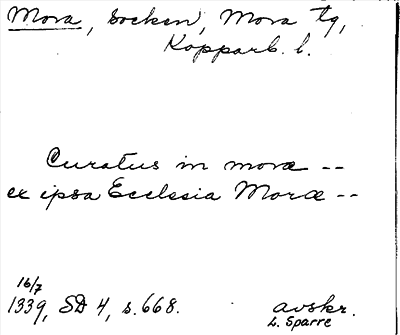 Mora, socken, Mora tg,
Kopparb. l.
Curatus in moræ --
ex ipsa Ecclesia Moræ --
16/7
1339, SD 4, s. 668.
avskr.
L. Sparre